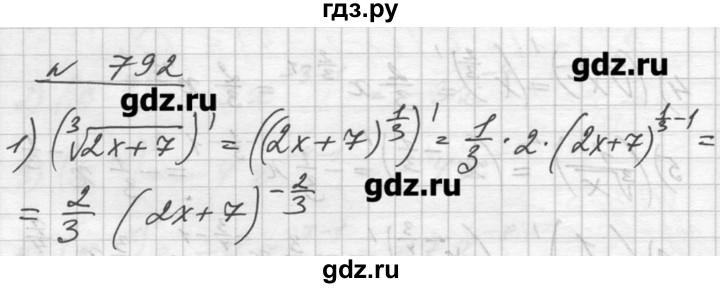 гдз.ру
№ 792
gdz.ru
gdz.ru
1) (∛(2x+7))' = ((2x+7)^(1/3))' = 1/3 · 2 · (2x+7)^(1/3-1) =
gdz.ru
= 2/3 (2x+7)^(-2/3)
gdz.ru